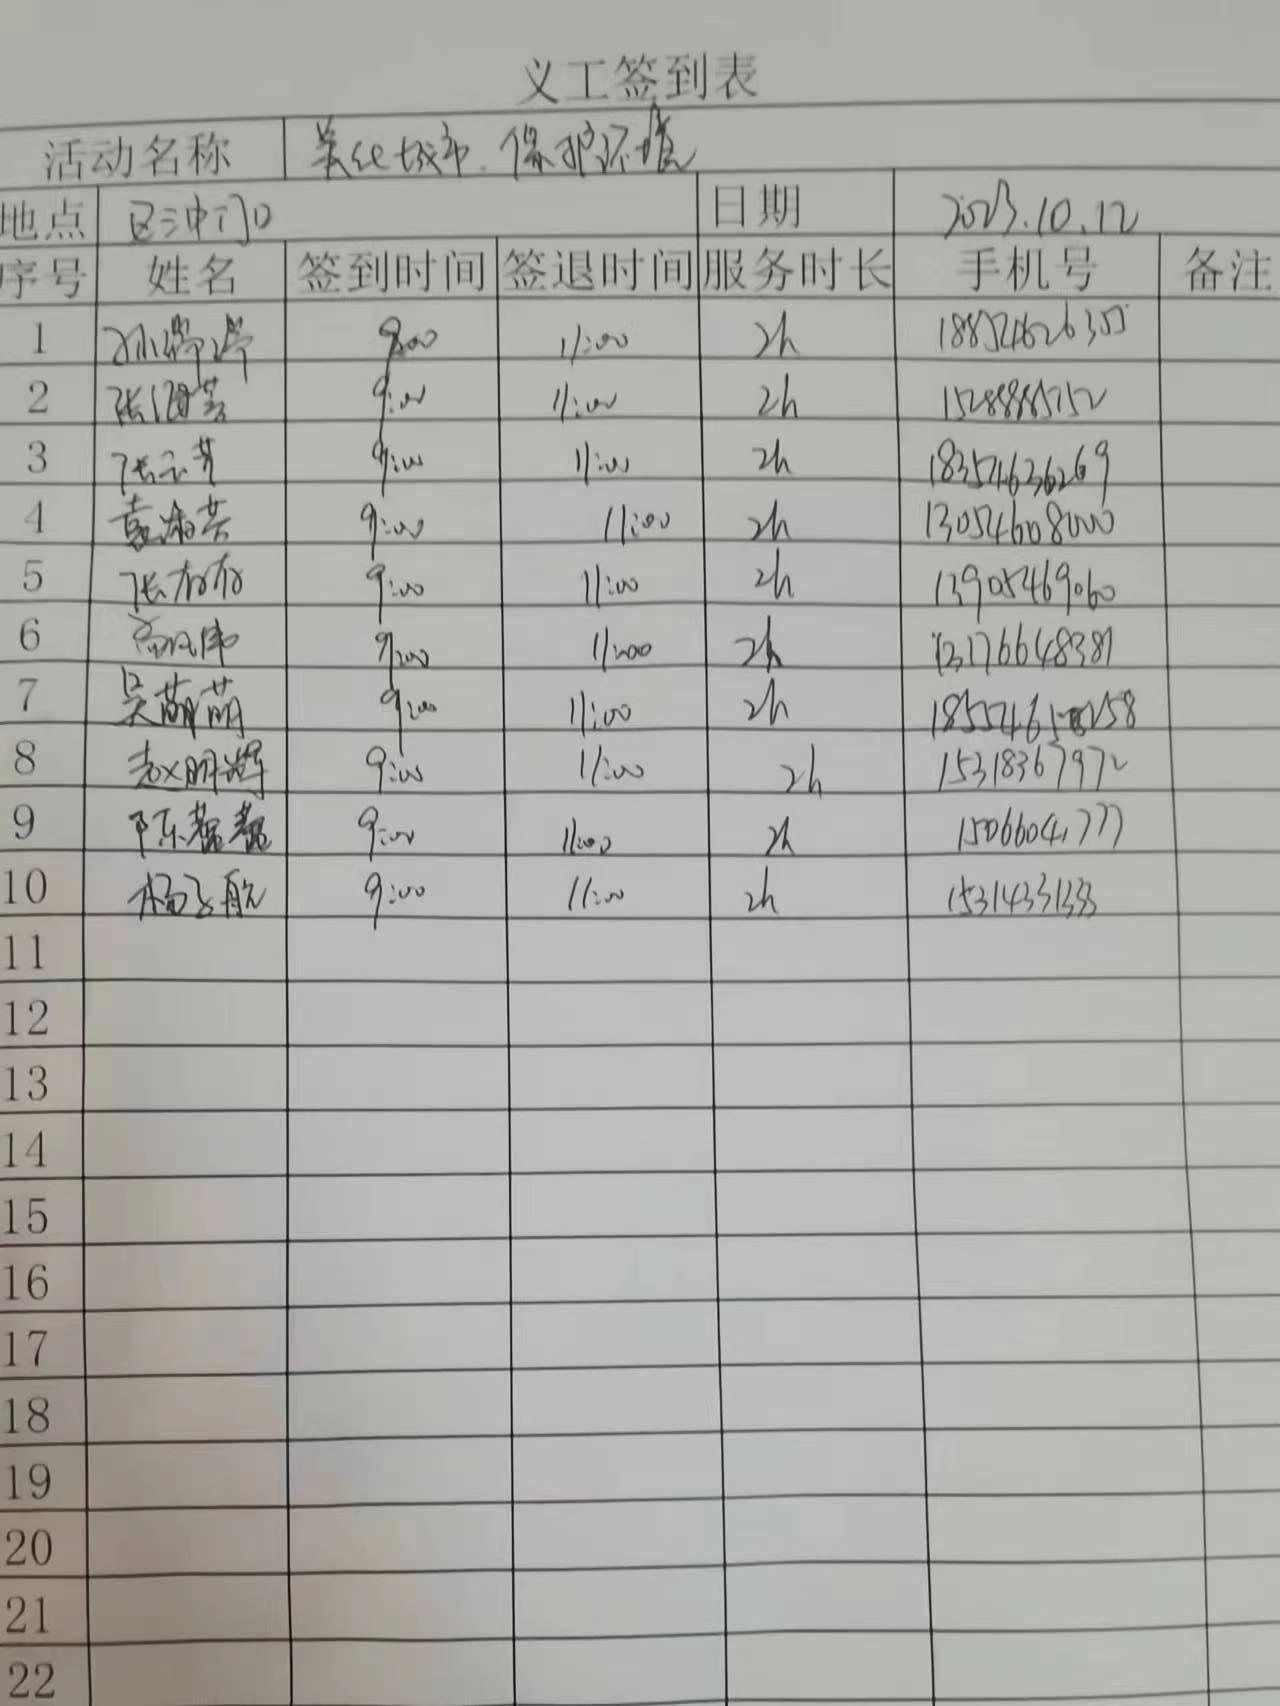 义工签到表
活动名称 美化城市.保护环境
地点 日期 2023.10.12
序号 姓名 签到时间 签退时间 服务时长 手机号 备注
1 9:00 11:00 2h
2 9:00 11:00 2h
3 9:00 11:00 2h 18354636269
4 9:00 11:00 2h 13054608000
5 9:00 11:00 2h 13905469060
6 9:00 11:00 2h 13176648381
7 吴萌萌 9:00 11:00 2h
8 赵明辉 9:00 11:00 2h 15318367972
9 9:00 11:00 2h 15066041777
10 杨飞航 9:00 11:00 2h 15314331333
11
12
13
14
15
16
17
18
19
20
21
22